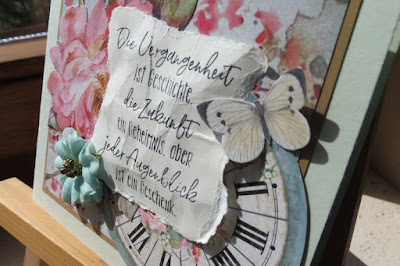 Die Vergangenheit
ist Geschichte,
die Zukunft
ein Geheimnis, aber
jeder Augenblick
ist ein Geschenk.